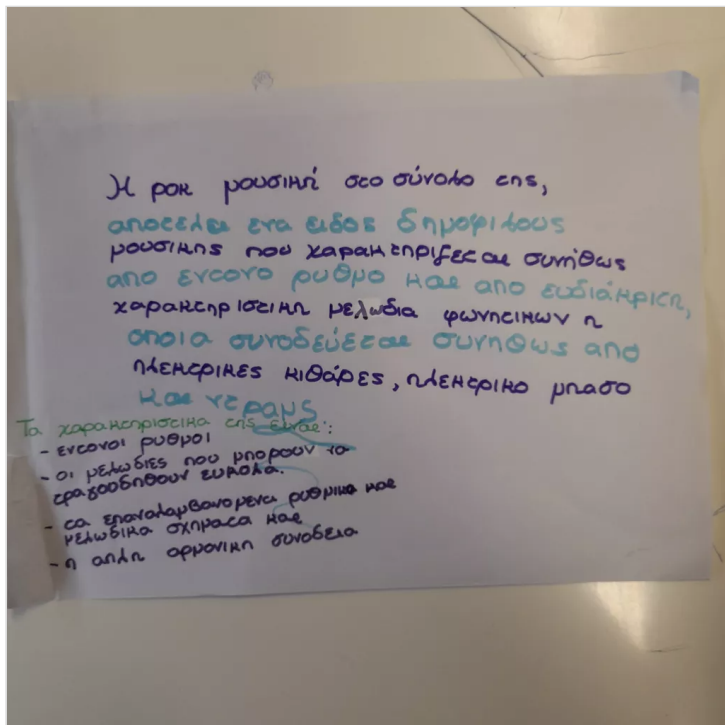 Η ροκ μουσική στο σύνολο της,
αποτελει ενα ειδος δημοφιλους
μουσικης που χαρακτηριζεται συνήθως
απο εντονο ρυθμο και απο ευδιάκριτη,
χαρακτηριστικη μελωδια φωνητικων η
οποια συνοδεύεται συνηθως από
ηλεκτρικες κιθάρες, ηλεκτρικο μπασο
και ντραμς
Τα χαρακτηριστικα της ειναι:
- εντονοι ρυθμοι
- οι μελωδιες που μπορουν να
τραγουδηθουν ευκολα.
- τα επαναλαμβανομενα ρυθμικα και
μελωδικα σχηματα και
- η απλη αρμονικη συνοδεια